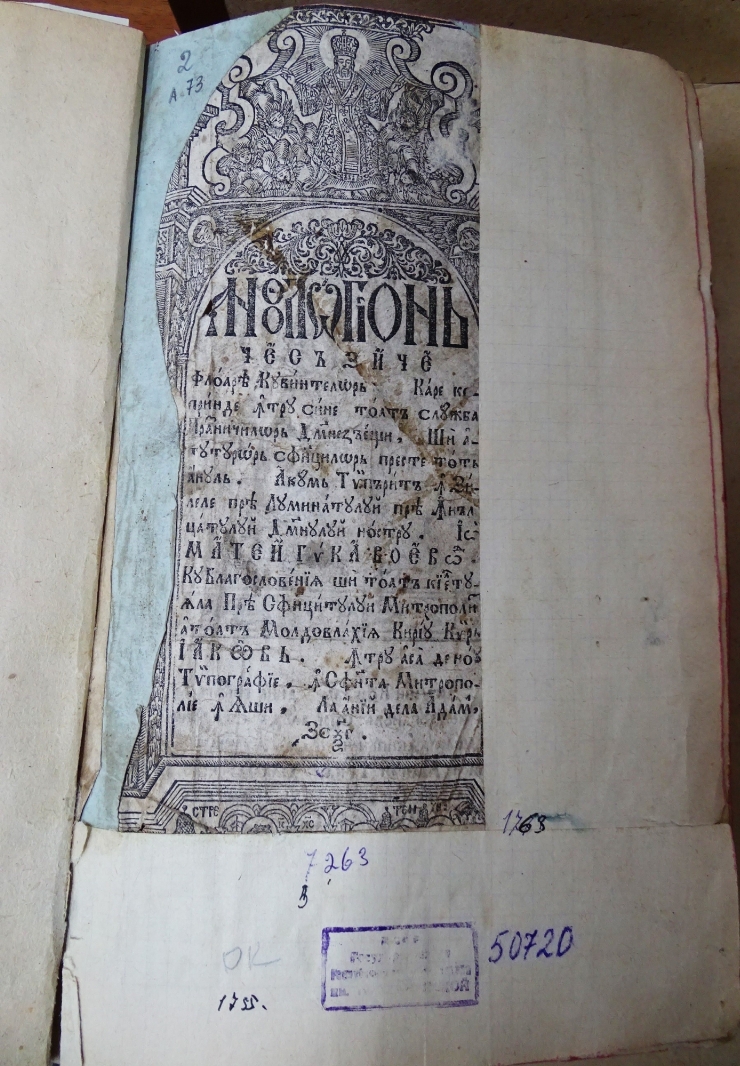 2
А.73
АНѲОЛОГІѠНЬ
ЧЕ́ СЪ ЗЙЧЕ́
Флоа́рѣ Кꙋви́нтелѡрь. Ка́ре кꙋ-
при́нде ꙟтрꙋ си́не тоа́тъ слꙋ́жба
Пра́зничилѡрь Дм҃незъе́щи. Ши а̀-
тꙋтꙋрѡ́рь сфи́нцилѡрь престе то́ть
а́нꙋль. Акꙋмь Тѷпъри́тъ ꙟ Зи́-
леле прѣ Лꙋмина́тꙋлꙋй прѣ ꙟнъл-
ца́тꙋлꙋй До́мнꙋлꙋй но́стрꙋ. Іѡ
МАТЕЙ ГИКА ВОЕВѠ́Д.
Кꙋ Благослове́нїѧ ши тоа́тъ кїелтꙋ-
ѧ́ла Прѣ Сфинци́тꙋлꙋи Митрополи́т
а̀ тоа́тъ Молдовла́хїѧ Кирїꙋ Кѷрь
ІАКѠВЬ. ꙟтрꙋ а́съ де но́ꙋ
Тѷпогра́фїе. ꙟ Сфн҃та Митропо-
лїе ꙟ Ꙗши. Ла а́нїй дела Ада́м,
҂ЗСѮГ.
СТРЕ ТЕН
1763
7263
50720
ОК
1755.